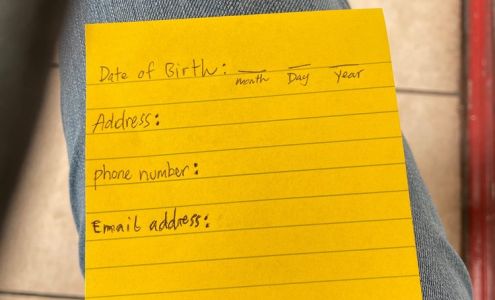 Date of Birth: __ __ __
month Day year
Address:
phone number:
Email address: